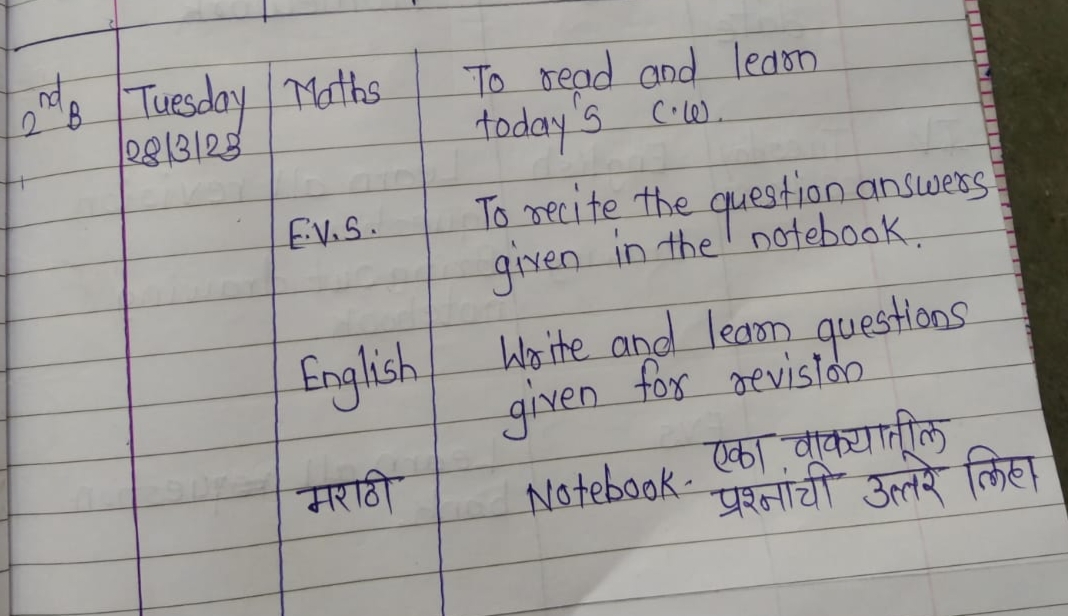 2nd B Tuesday Maths To read and learn
28/3/23 today's C.W.
E.V.S. To recite the question answers
given in the notebook.
English Write and learn questions
given for revision
मराठी Notebook- एका वाक्यातील
प्रश्नांची उत्तरे लिहा